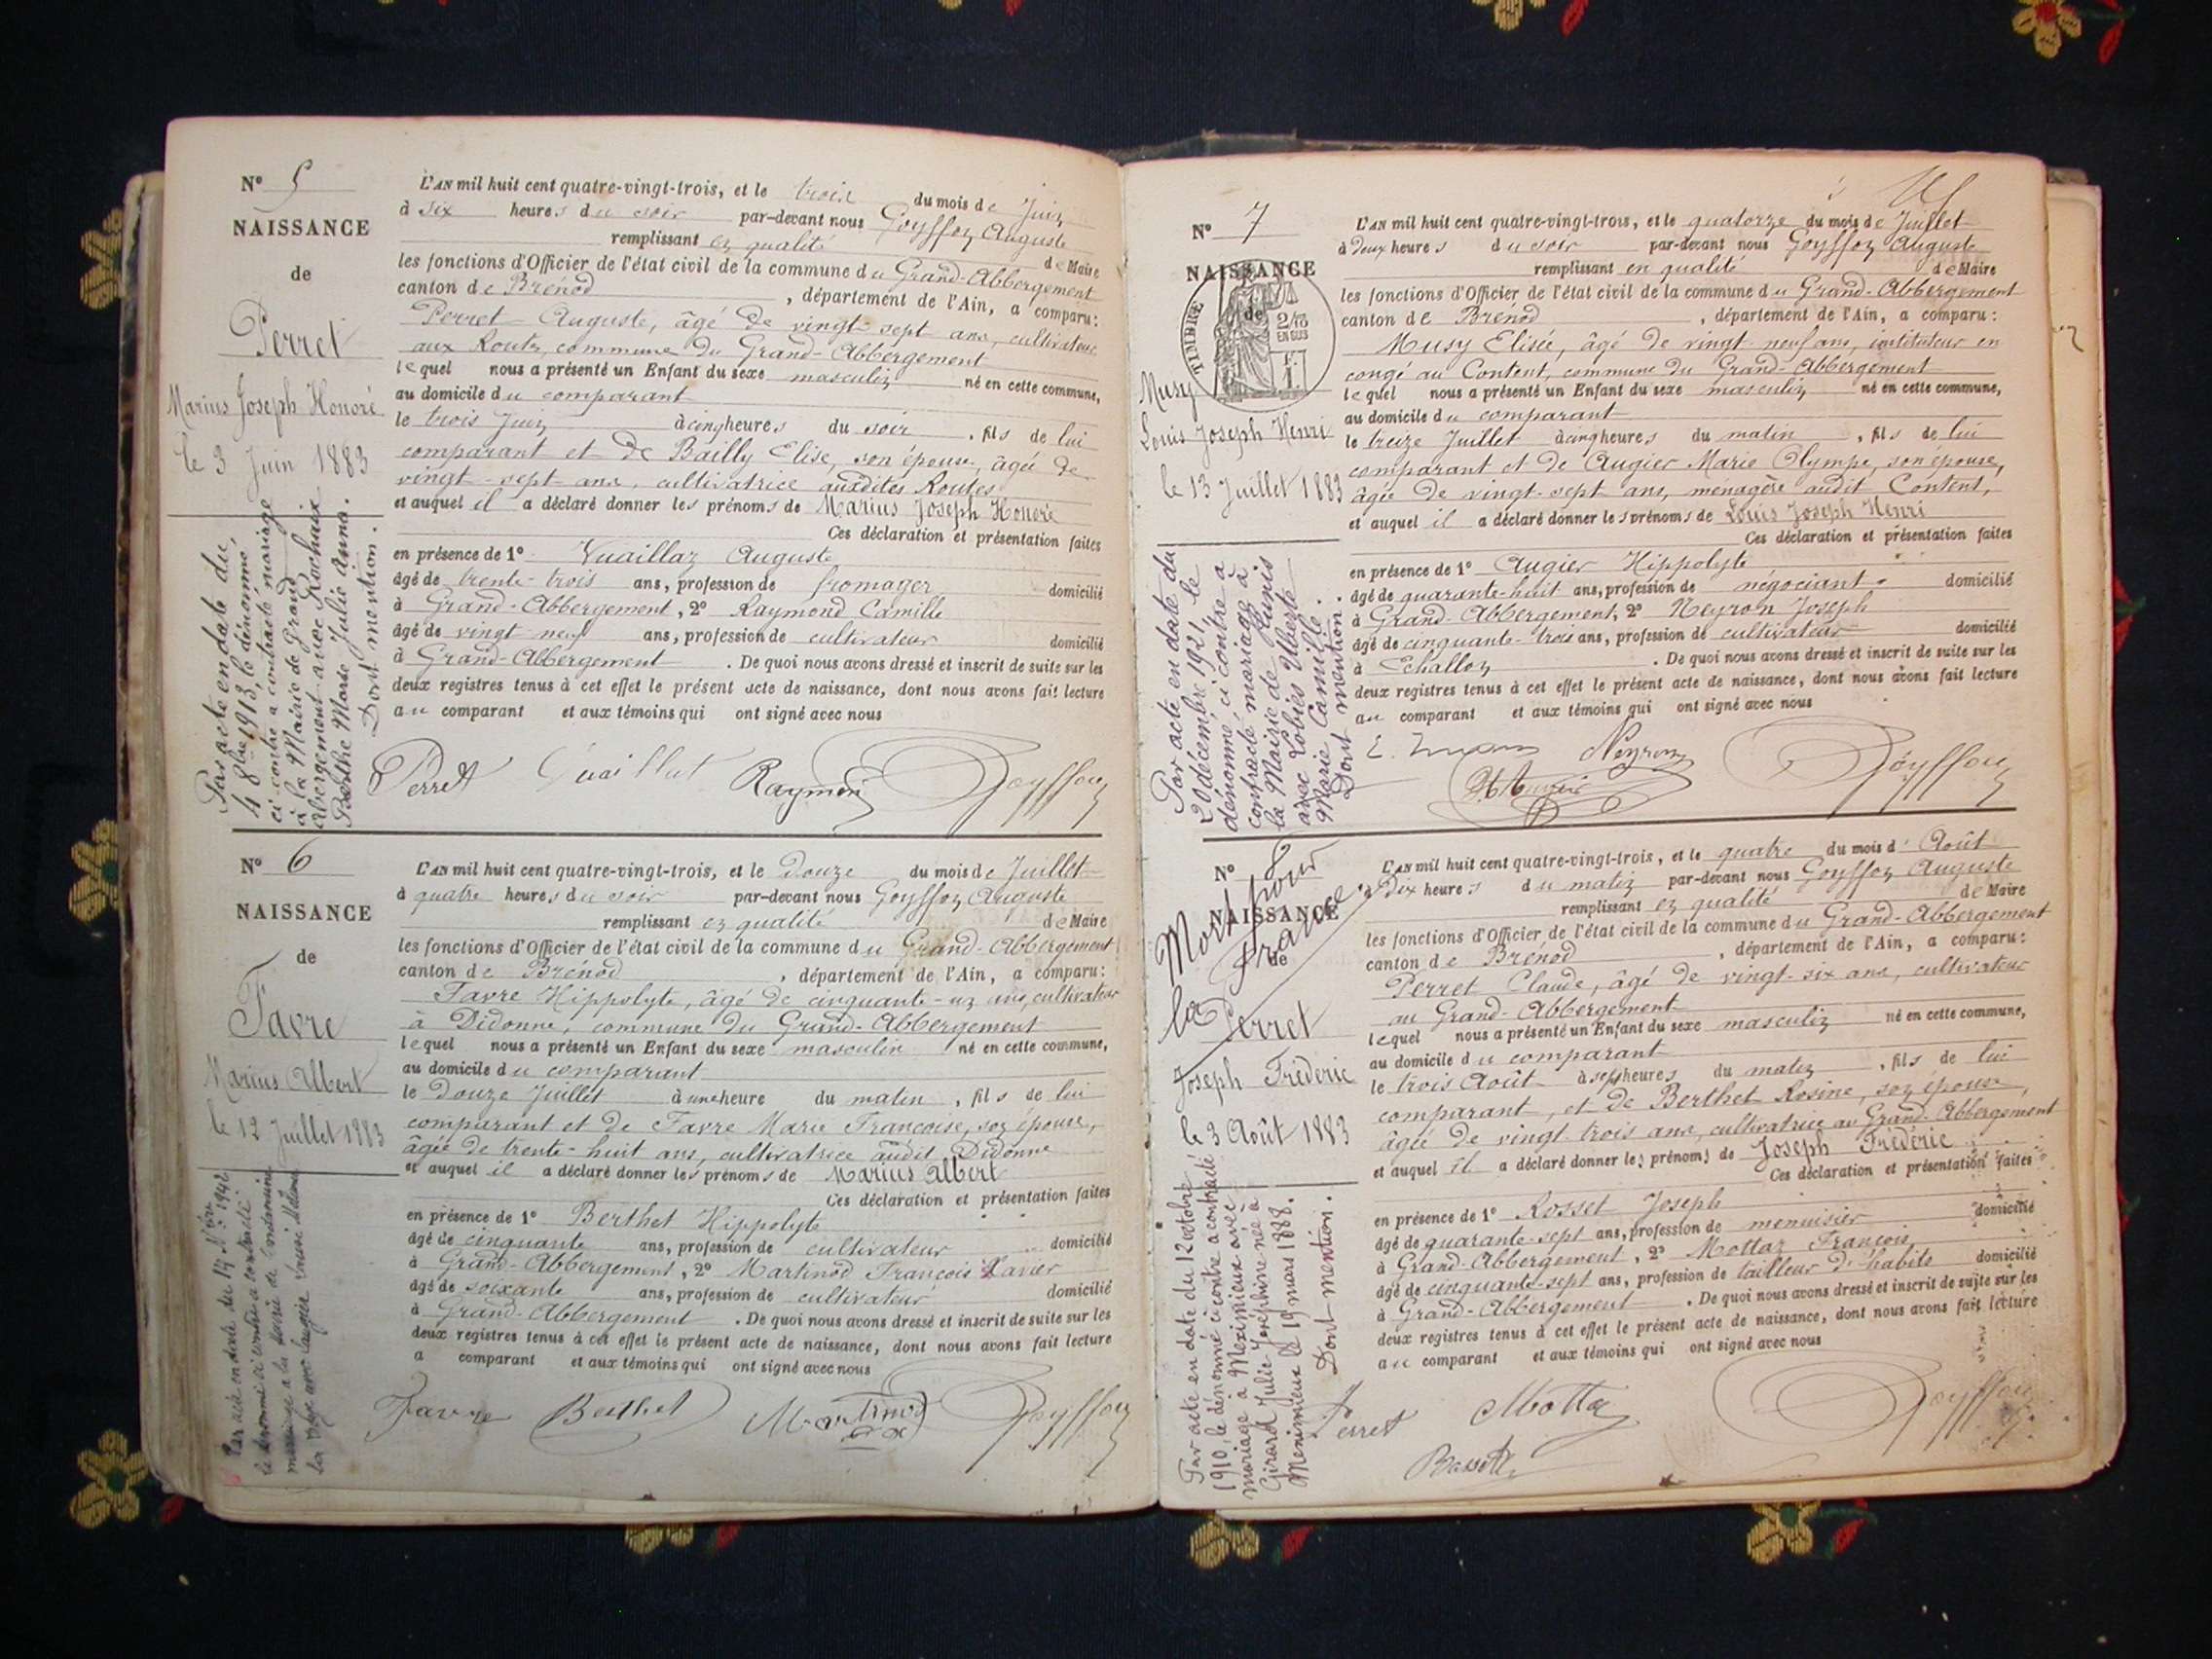 N° 5
NAISSANCE
de
Perret
Marius Joseph Honoré
le 3 Juin 1883
Par acte en date du,
4 8bre 1913, le dénommé
ci-contre a contracté mariage
à la Mairie de Grand
Abergement avec Rochaix
Berthe Marie Julie Anna.
Dont mention.
L'AN mil huit cent quatre-vingt-trois, et le trois du mois de Juin
à six heures du soir par-devant nous Goyffon Auguste
remplissant en qualité de Maire
les fonctions d'Officier de l'état civil de la commune du Grand-Abbergement
canton de Brénod, département de l'Ain, a comparu:
Perret Auguste, âgé de vingt-sept ans, cultivateur
aux Routes, commune du Grand-Abbergement
lequel nous a présenté un Enfant du sexe masculin né en cette commune,
au domicile du comparant
le trois Juin à cinq heures du soir, fils de lui
comparant et de Bailly Elise, son épouse, âgée de
vingt-sept ans, cultivatrice auxdites Routes
et auquel il a déclaré donner les prénoms de Marius Joseph Honoré
Ces déclaration et présentation faites
en présence de 1° Vuaillaz Auguste
âgé de trente-trois ans, profession de fromager domicilié
à Grand-Abbergement, 2° Raymond Camille
âgé de vingt neuf ans, profession de cultivateur domicilié
à Grand-Abbergement. De quoi nous avons dressé et inscrit de suite sur les
deux registres tenus à cet effet le présent acte de naissance, dont nous avons fait lecture
au comparant et aux témoins qui ont signé avec nous
Perret Raymond Goyffon
N° 6
NAISSANCE
de
Favre
Marius Albert
le 12 Juillet 1883
Par acte en date du 14
le dénommé ci-contre a contracté
mariage à la mairie de
avec
L'AN mil huit cent quatre-vingt-trois, et le douze du mois de Juillet
à quatre heures du soir par-devant nous Goyffon Auguste
remplissant en qualité de Maire
les fonctions d'Officier de l'état civil de la commune du Grand-Abbergement
canton de Brénod, département de l'Ain, a comparu:
Favre Hippolyte, âgé de cinquante-un ans, cultivateur
à Didonne, commune du Grand-Abbergement
lequel nous a présenté un Enfant du sexe masculin né en cette commune,
au domicile du comparant
le douze Juillet à une heure du matin, fils de lui
comparant et de Favre Marie Françoise, son épouse,
âgée de trente-huit ans, cultivatrice audit Didonne
et auquel il a déclaré donner les prénoms de Marius Albert
Ces déclaration et présentation faites
en présence de 1° Berthet Hippolyte
âgé de cinquante ans, profession de cultivateur domicilié
à Grand-Abbergement, 2° Martinod François Xavier
âgé de soixante ans, profession de cultivateur domicilié
à Grand-Abbergement. De quoi nous avons dressé et inscrit de suite sur les
deux registres tenus à cet effet le présent acte de naissance, dont nous avons fait lecture
a comparant et aux témoins qui ont signé avec nous
Favre Berthet Martinod Goyffon
N° 7
NAISSANCE
de
TIMBRE
2/10
EN SUS
Musy
Louis Joseph Henri
le 13 Juillet 1883
Par acte en date du
20 décembre 1921, le
dénommé ci contre a
contracté mariage à
la Mairie de
avec Lobiès
Marie Camille.
Dont mention.
L'AN mil huit cent quatre-vingt-trois, et le quatorze du mois de Juillet
à deux heures du soir par-devant nous Goyffon Auguste
remplissant en qualité de Maire
les fonctions d'Officier de l'état civil de la commune du Grand-Abbergement
canton de Brénod, département de l'Ain, a comparu:
Musy Elisée, âgé de vingt-neuf ans, instituteur en
congé au Content, commune du Grand-Abbergement
lequel nous a présenté un Enfant du sexe masculin né en cette commune,
au domicile du comparant
le treize Juillet à cinq heures du matin, fils de lui
comparant et de Augier Marie Olympe, son épouse,
âgée de vingt-sept ans, ménagère audit Content,
et auquel il a déclaré donner les prénoms de Louis Joseph Henri
Ces déclaration et présentation faites
en présence de 1° Augier Hippolyte
âgé de quarante-huit ans, profession de négociant domicilié
à Grand-Abbergement, 2° Neyron Joseph
âgé de cinquante-trois ans, profession de cultivateur domicilié
à Echallon. De quoi nous avons dressé et inscrit de suite sur les
deux registres tenus à cet effet le présent acte de naissance, dont nous avons fait lecture
au comparant et aux témoins qui ont signé avec nous
Neyron Goyffon
N° 8
NAISSANCE
de
Mort pour
la France
Perret
Joseph Frédéric
le 3 Août 1883
Par acte en date du 12 octobre
1910, le dénommé ci-contre a contracté
mariage à Meximieux avec
Girard Julie Joséphine née à
Meximieux le 19 mars 1888.
Dont mention.
L'AN mil huit cent quatre-vingt-trois, et le quatre du mois d'Août
à dix heures du matin par-devant nous Goyffon Auguste
remplissant en qualité de Maire
les fonctions d'Officier de l'état civil de la commune du Grand-Abbergement
canton de Brénod, département de l'Ain, a comparu:
Perret Claude, âgé de vingt-six ans, cultivateur
au Grand-Abbergement
lequel nous a présenté un Enfant du sexe masculin né en cette commune,
au domicile du comparant
le trois Août à sept heures du matin, fils de lui
comparant, et de Berthet Rosine, son épouse,
âgée de vingt-trois ans, cultivatrice au Grand-Abbergement
et auquel il a déclaré donner les prénoms de Joseph Frédéric
Ces déclaration et présentation faites
en présence de 1° Rosset Joseph
âgé de quarante-sept ans, profession de menuisier domicilié
à Grand-Abbergement, 2° Mottaz François
âgé de cinquante-sept ans, profession de tailleur d'habits domicilié
à Grand-Abbergement. De quoi nous avons dressé et inscrit de suite sur les
deux registres tenus à cet effet le présent acte de naissance, dont nous avons fait lecture
au comparant et aux témoins qui ont signé avec nous
Perret Mottaz Goyffon